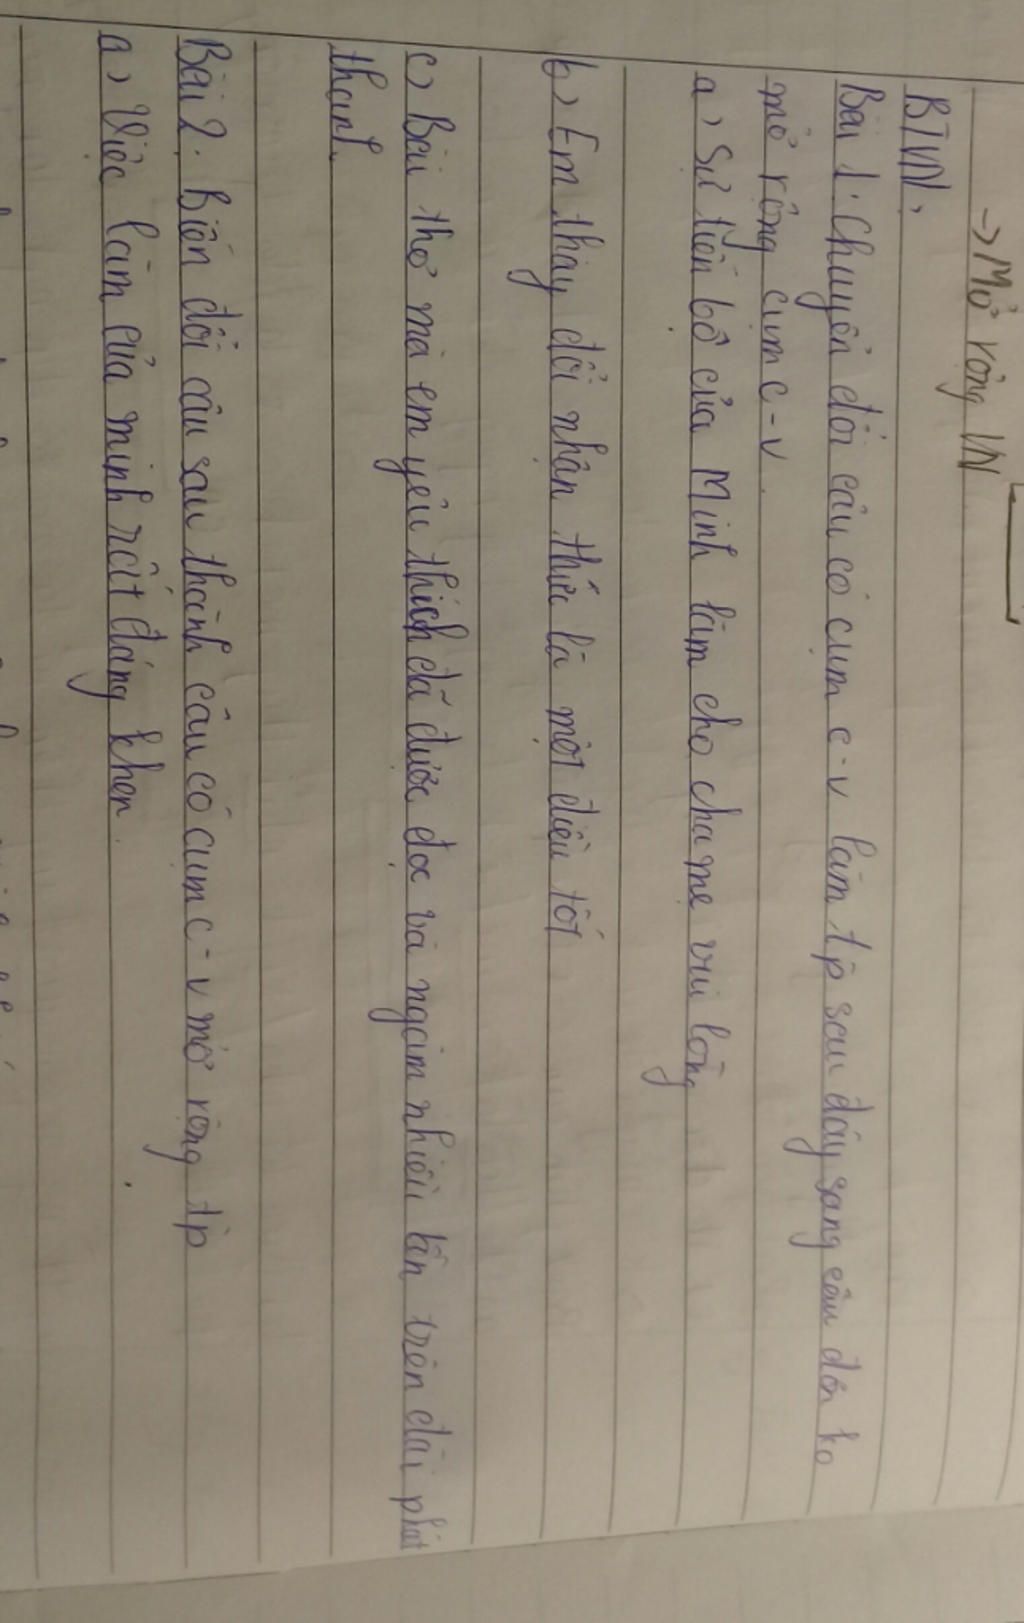 -> Mở rộng VN
BTVN,
Bài 1. Chuyển đổi câu có cụm c-v làm tp sau đây sang câu đơn ko
mở rộng cụm c-v.
a, Sự tiến bộ của Minh làm cho cha mẹ vui lòng
b, Em thay đổi nhận thức là một điều tốt
c, Bài thơ mà em yêu thích đã được đọc và ngâm nhiều lần trên đài phát
thanh.
Bài 2. Biến đổi câu sau thành câu có cụm c-v mở rộng tp
a, Việc làm của mình rất đáng khen.